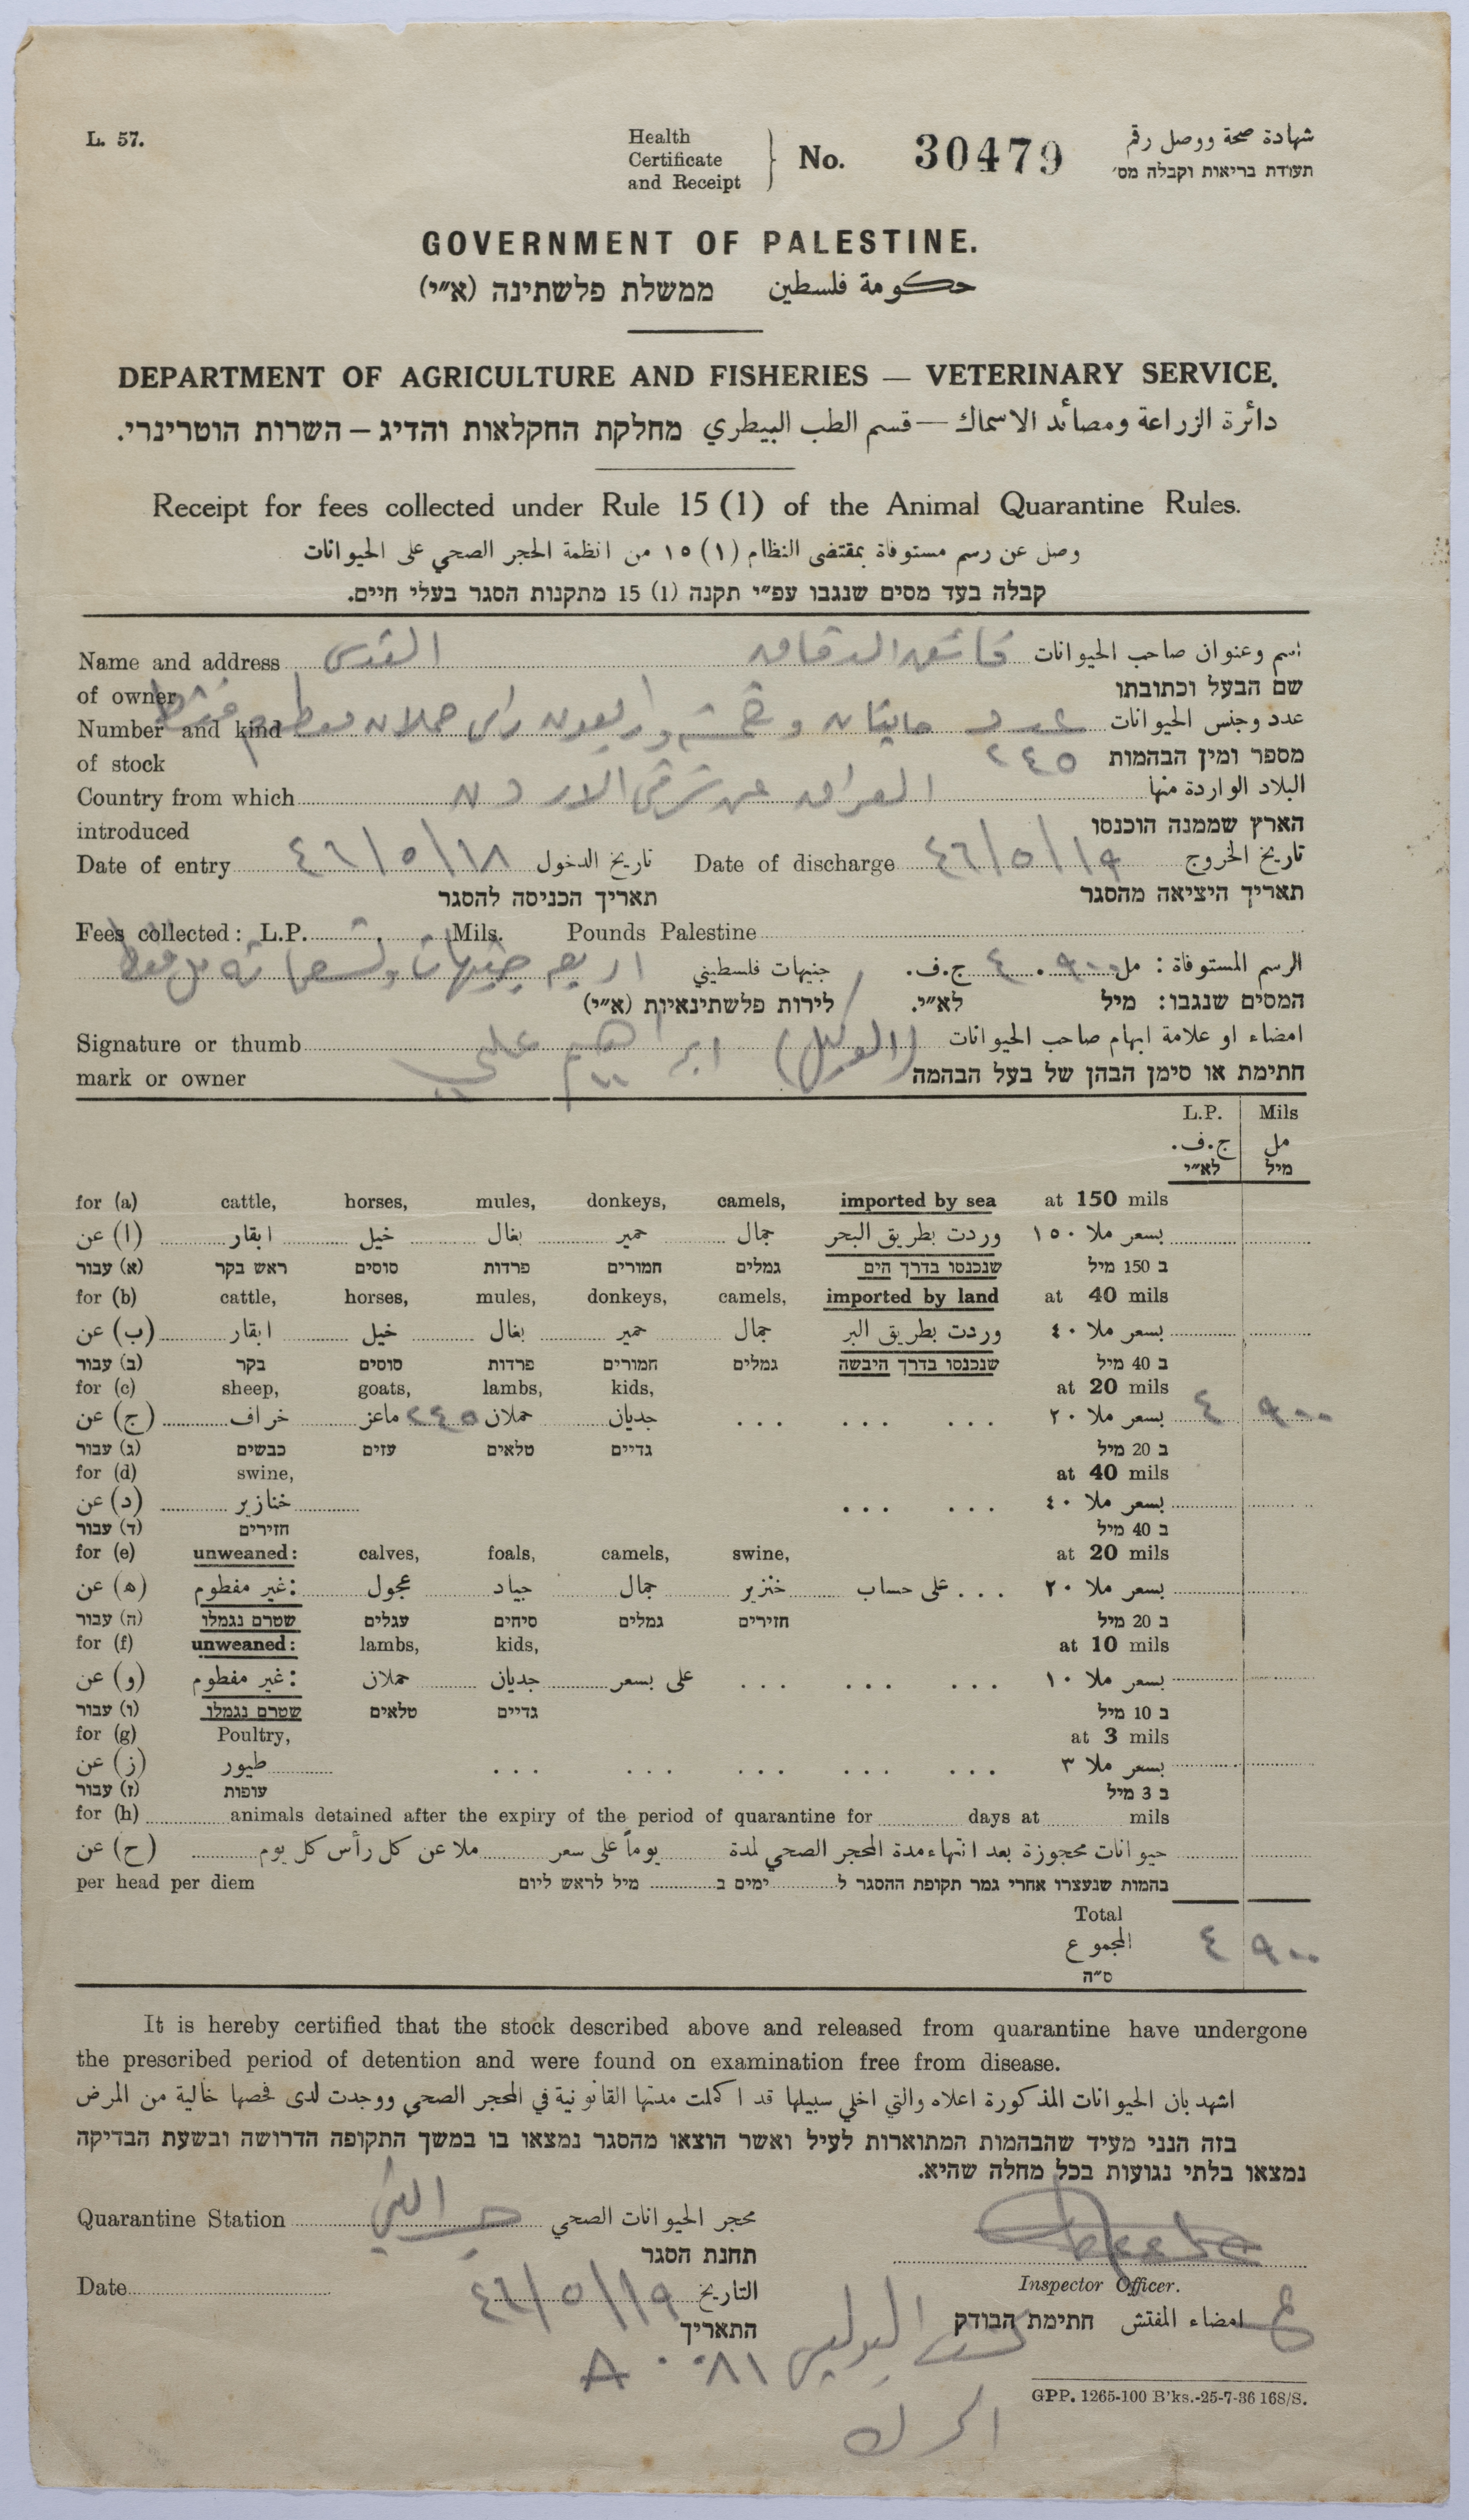 L. 57.
Health Certificate and Receipt } No. 30479 شهادة صحة ووصل رقم
תעודת בריאות וקבלה מס׳
GOVERNMENT OF PALESTINE.
حكومة فلسطين ממשלת פלשתינה (א״י)
DEPARTMENT OF AGRICULTURE AND FISHERIES — VETERINARY SERVICE.
دائرة الزراعة ومصائد الاسماك — قسم الطب البيطري מחלקת החקלאות והדיג – השרות הוטרינרי.
Receipt for fees collected under Rule 15 (1) of the Animal Quarantine Rules.
وصل عن رسم مستوفاة بمقتضى النظام (١) ١٥ من انظمة الحجر الصحي على الحيوانات
קבלה בעד מסים שנגבו עפ״י תקנה (1) 15 מתקנות הסגר בעלי חיים.
Name and address القدس الدقاق اسم وعنوان صاحب الحيوانات
of owner שם הבעל וכתובתו
Number and kind عدد مايتان وخمسة واربعون راس حملان مفطوم فقط عدد وجنس الحيوانات
of stock ٢٤٥ מספר ומין הבהמות
Country from which العراق عن شرقي الاردن البلاد الواردة منها
introduced הארץ שממנה הוכנסו
Date of entry ٤٦/٥/١٨ تاريخ الدخول Date of discharge ٤٦/٥/١٩ تاريخ الخروج
תאריך הכניסה להסגר תאריך היציאה מהסגר
Fees collected: L.P. . Mils. Pounds Palestine
الرسم المستوفاة: مل ٩٠٠ . ٤ ج.ف. جنيهات فلسطيني اربع جنيهات وتسعماية مل فقط
המסים שנגבו: מיל לא״י. לירות פלשתינאיות (א״י)
Signature or thumb (الوكيل) ابراهيم علي امضاء او علامة ابهام صاحب الحيوانات
mark or owner חתימת או סימן הבהן של בעל הבהמה
L.P. Mils
ج.ف. مل
לא״י מיל
for (a) cattle, horses, mules, donkeys, camels, imported by sea at 150 mils
(ا) عن ابقار خيل بغال حمير جمال وردت بطريق البحر بسعر ملا ١٥٠
(א) עבור ראש בקר סוסים פרדות חמורים גמלים שנכנסו בדרך הים ב 150 מיל
for (b) cattle, horses, mules, donkeys, camels, imported by land at 40 mils
(ب) عن ابقار خيل بغال حمير جمال وردت بطريق البر بسعر ملا ٤٠
(ב) עבור בקר סוסים פרדות חמורים גמלים שנכנסו בדרך היבשה ב 40 מיל
for (c) sheep, goats, lambs, kids, at 20 mils
(ج) عن خراف ماعز ٢٤٥ حملان جديان ... ... ... بسعر ملا ٢٠ ٤ ٩٠٠
(ג) עבור כבשים עזים טלאים גדיים ב 20 מיל
for (d) swine, at 40 mils
(د) عن خنازير ... ... بسعر ملا ٤٠
(ד) עבור חזירים ב 40 מיל
for (e) unweaned: calves, foals, camels, swine, at 20 mils
(ه) عن غير مفطوم: عجول جياد جمال خنزير على حساب ... بسعر ملا ٢٠
(ה) עבור שטרם נגמלו עגלים סיחים גמלים חזירים ב 20 מיל
for (f) unweaned: lambs, kids, at 10 mils
(و) عن غير مفطوم: حملان جديان على بسعر ... ... ... بسعر ملا ١٠
(ו) עבור שטרם נגמלו טלאים גדיים ב 10 מיל
for (g) Poultry, at 3 mils
(ز) عن طيور ... ... ... ... ... بسعر ملا ٣
(ז) עבור עופות ב 3 מיל
for (h) animals detained after the expiry of the period of quarantine for days at mils
(ح) عن حيوانات محجوزة بعد انتهاء مدة المحجر الصحي لمدة يوماً على سعر ملا عن كل رأس كل يوم
per head per diem בהמות שנעצרו אחרי גמר תקופת ההסגר ל ימים ב מיל לראש ליום
Total
المجموع ٤ ٩٠٠
ס״ה
It is hereby certified that the stock described above and released from quarantine have undergone
the prescribed period of detention and were found on examination free from disease.
اشهد بان الحيوانات المذكورة اعلاه والتي اخلي سبيلها قد اكملت مدتها القانونية في المحجر الصحي ووجدت لدى فحصها خالية من المرض
בזה הנני מעיד שהבהמות המתוארות לעיל ואשר הוצאו מהסגר נמצאו בו במשך התקופה הדרושה ובשעת הבדיקה
נמצאו בלתי נגועות בכל מחלה שהיא.
Quarantine Station محجر الحيوانات الصحي
תחנת הסגר
Inspector Officer.
Date ٤٦/٥/١٩ التاريخ
امضاء المفتش חתימת הבודק
התאריך
البوليس
GPP. 1265-100 B'ks.-25-7-36 168/S.